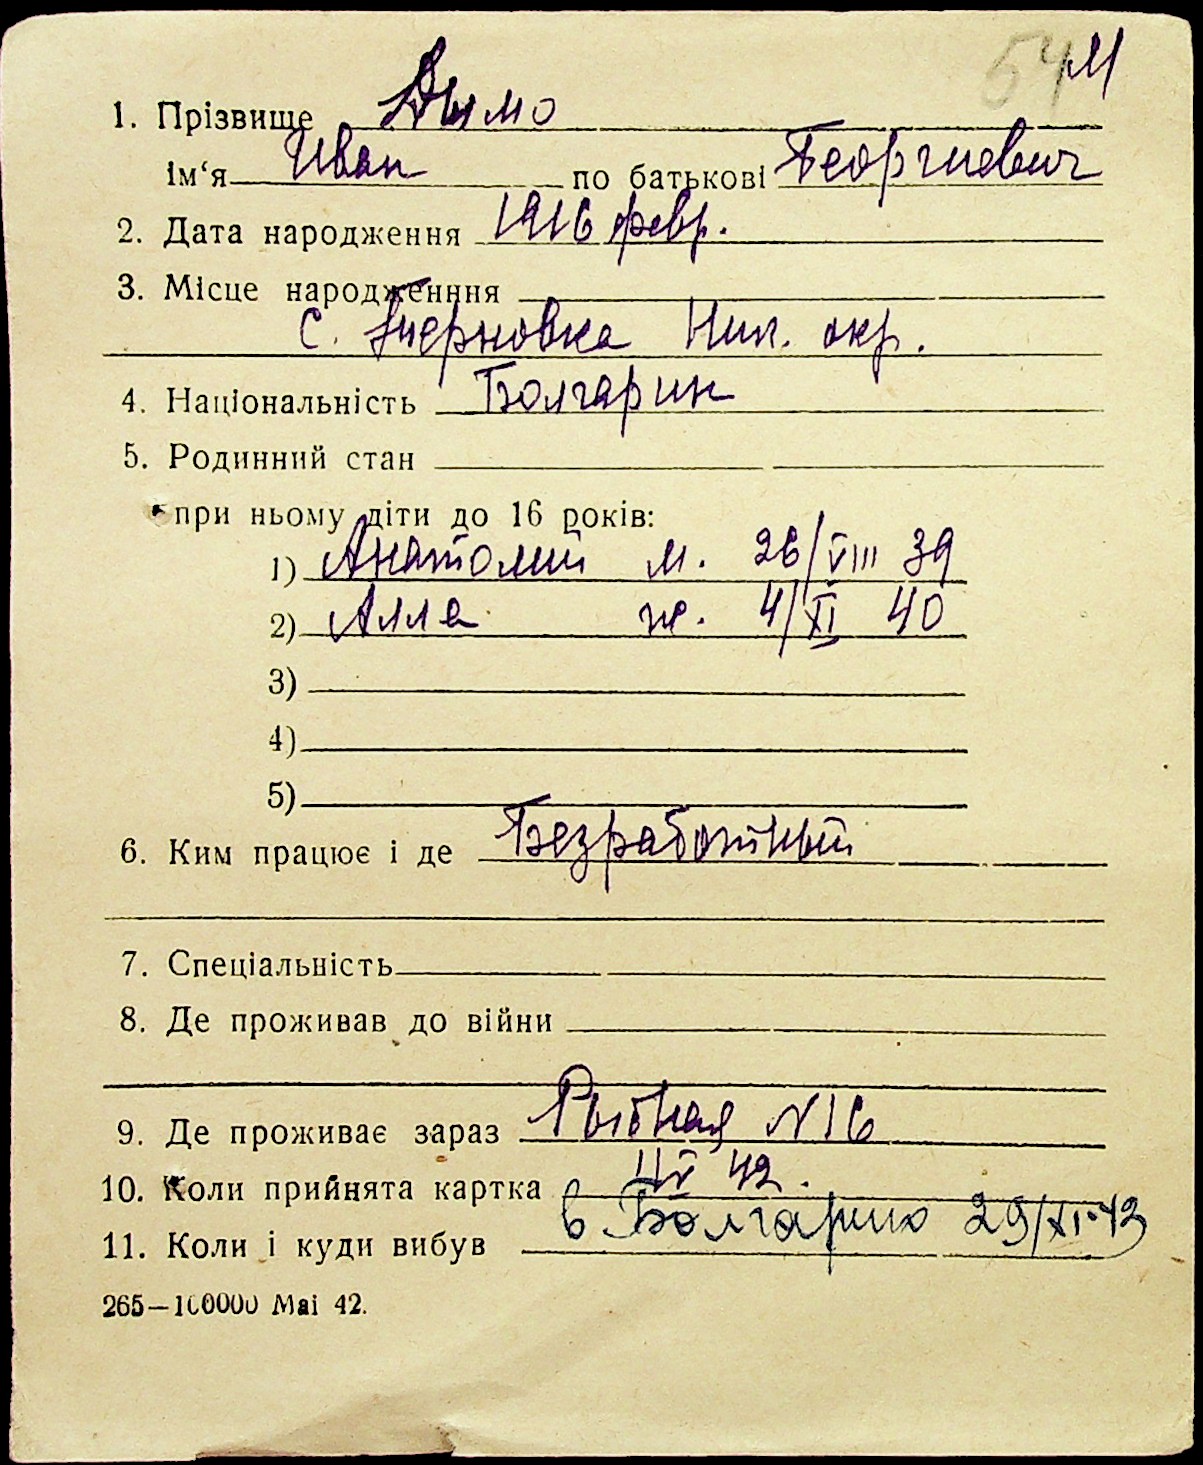 54 М
1. Прізвище Дымо
ім‘я Иван по батькові Георгиевич
2. Дата народження 1916 февр.
3. Місце народженння
с. Терновка Ник. окр.
4. Національність Болгарин
5. Родинний стан
при ньому діти до 16 років:
1) Анатолий м. 26/VIII 39
2) Алла ж. 4/XI 40
3)
4)
5)
6. Ким працює і де Безработный
7. Спеціальність
8. Де проживав до війни
9. Де проживає зараз Рыбная N 16
10. Коли прийнята картка 42.
11. Коли і куди вибув в Болгарию 29/XI.43
265—100000 Mai 42.